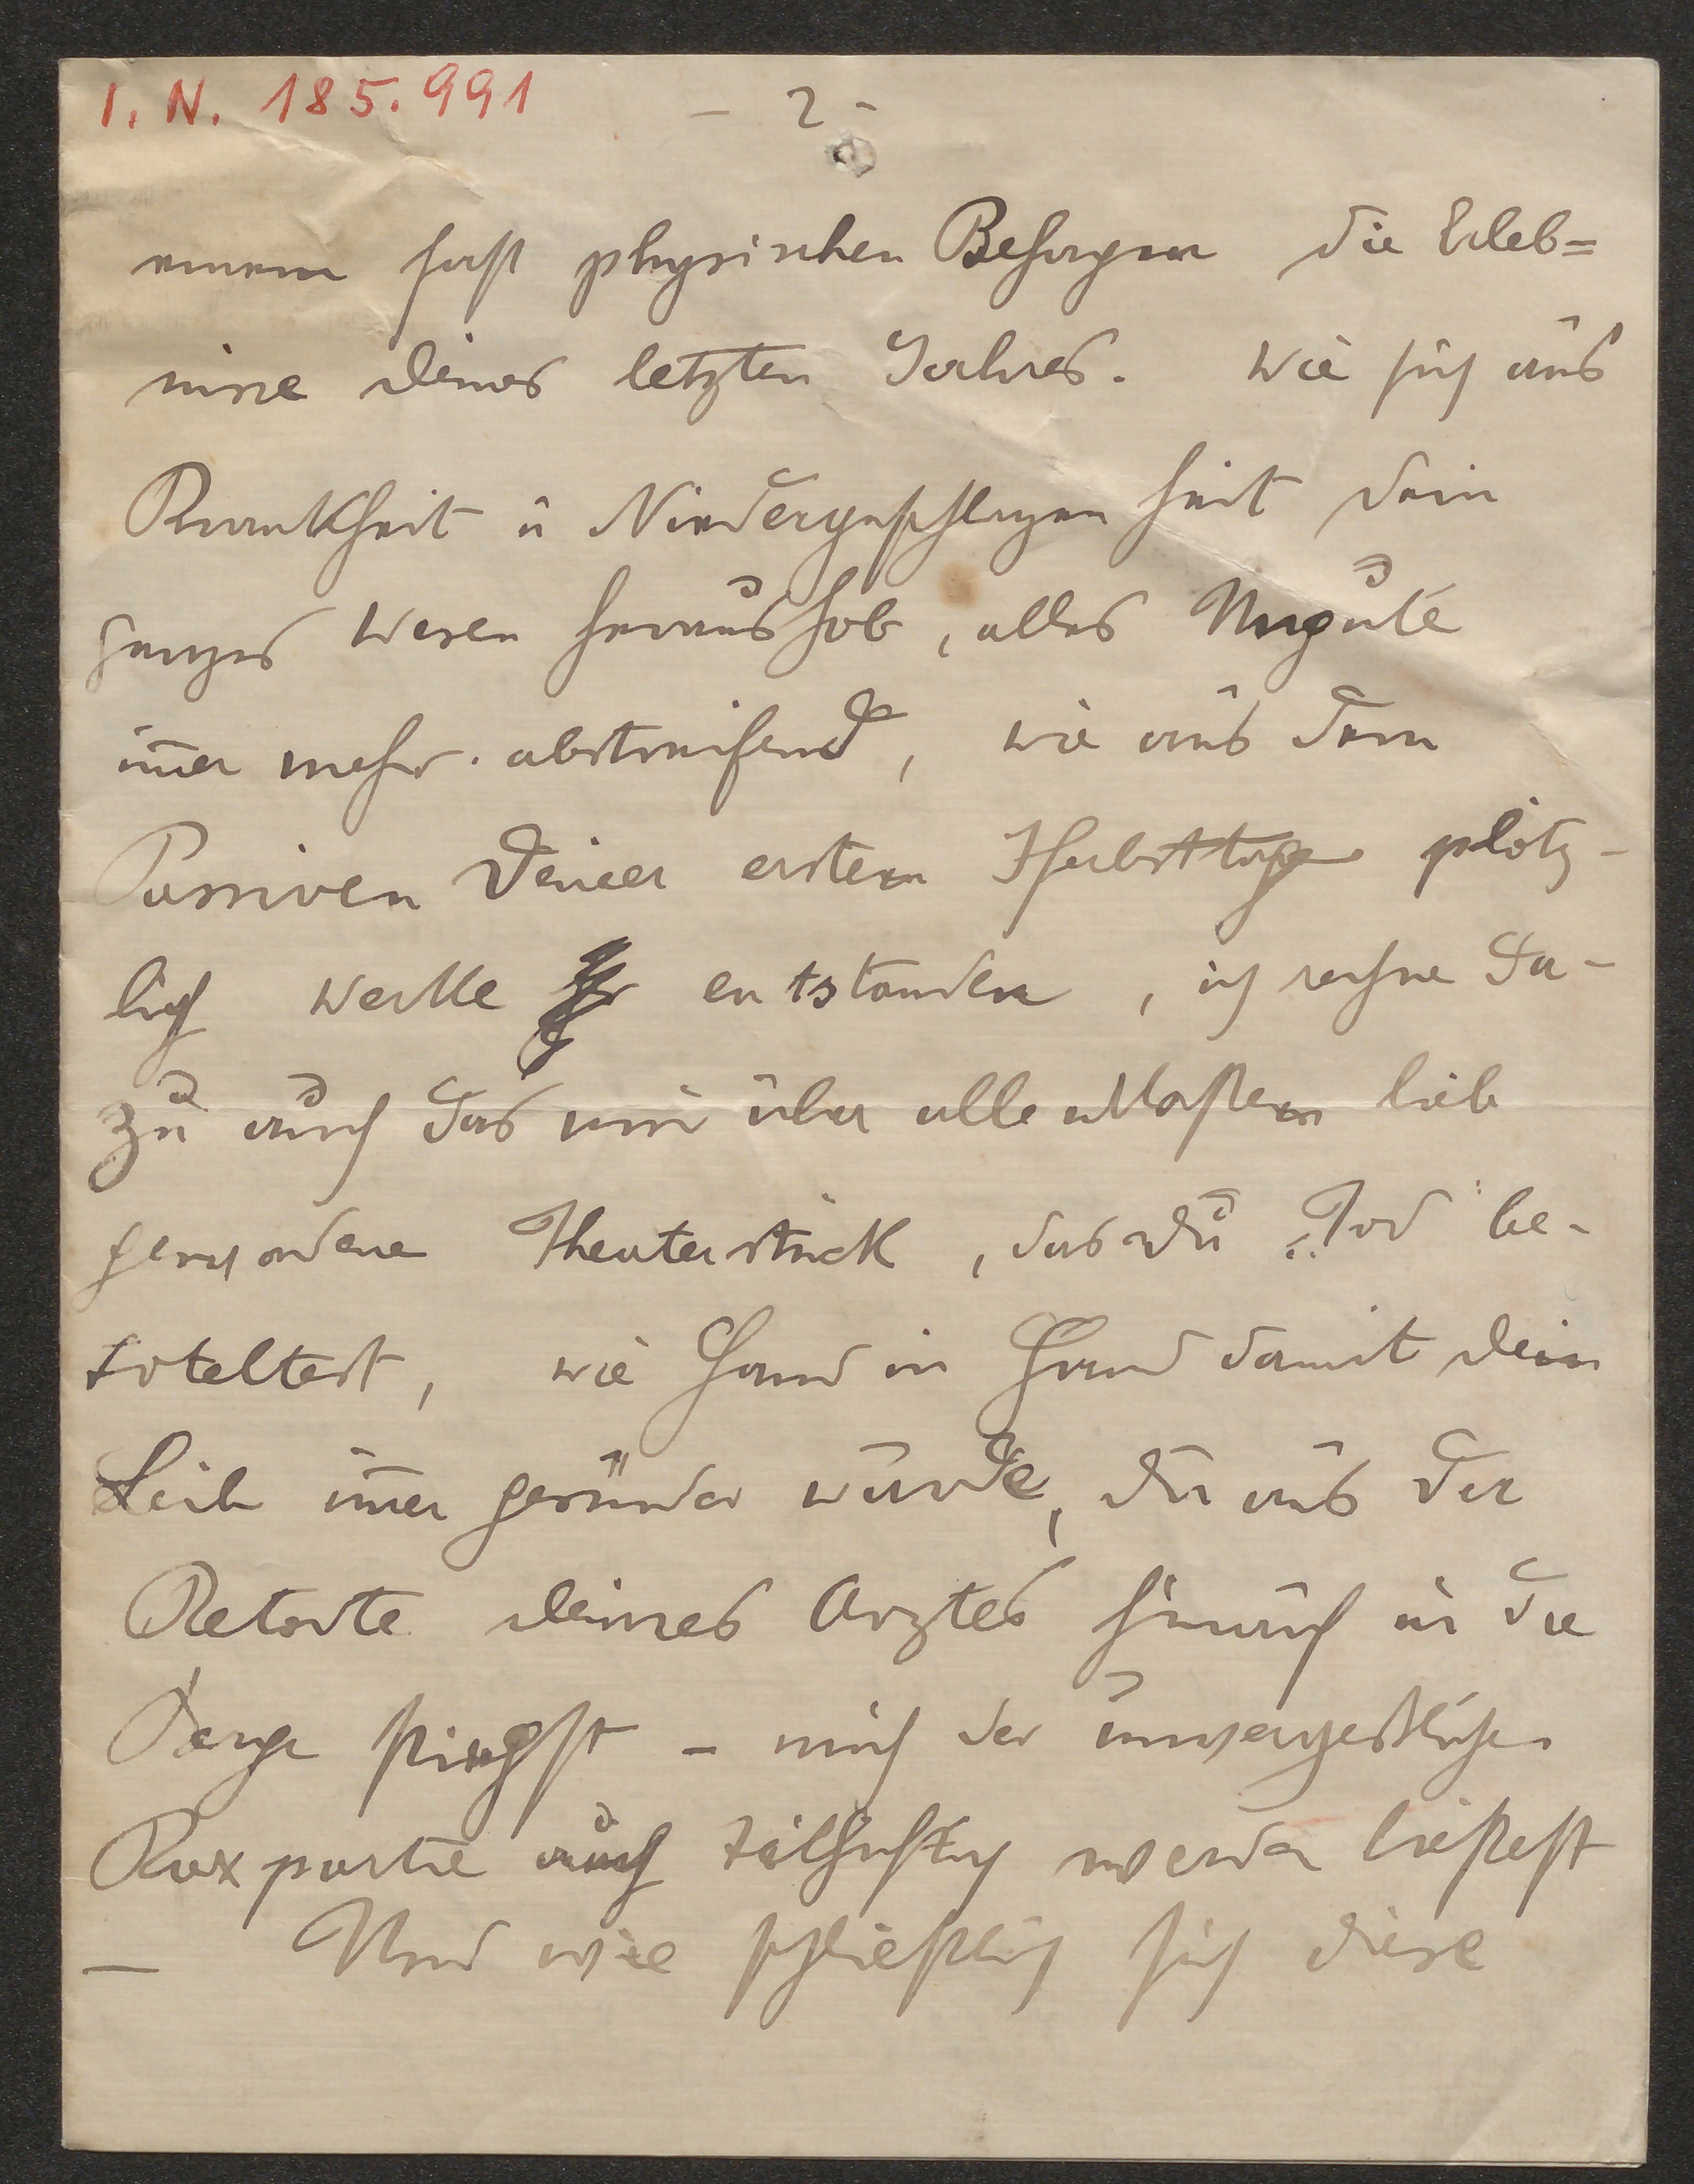 I. N. 185.991
- 2 -
einem fast physischen Behagen die Erleb=
nisse deines letzten Jahres. Wie sich aus
Krankheit u Niedergeschlagenheit dein
ganzes Wesen heraushob, alles Ungute
im̅er mehr abstreifend, wie aus dem
Passiven Deiner ersten Herbsttage plötz-
lich Werke entstanden, ich rechne da-
zu auch das mir über alle Maßen lieb
gewordene Theaterstück, das Du „Tod" be-
titeltest, wie Hand in Hand damit dein
Leib im̅er gesünder wurde, Du aus der
Retorte deines Arztes hinauf in die
Berge stiegst - mich der unvergeßlichen
Raxpartie auch teilhaftig werden ließest
— Und wie schließlich sich diese